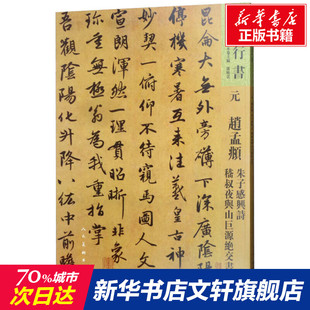 新华文轩
XINHUA WINSHARE
行書
元
趙孟頫
朱子感興詩
嵇叔夜與山巨源絶交書
昆侖大無外旁礴下深廣陰陽
停機寒暑互來往羲皇古神
妙契一俯仰不待窺馬圖人
宣朗渾然一理貫昭晰非象
珍重無極翁為我重
吾觀陰陽化升降八紘中前瞻
70%城市
次日送达
本地发货
新华书店文轩官方旗舰店